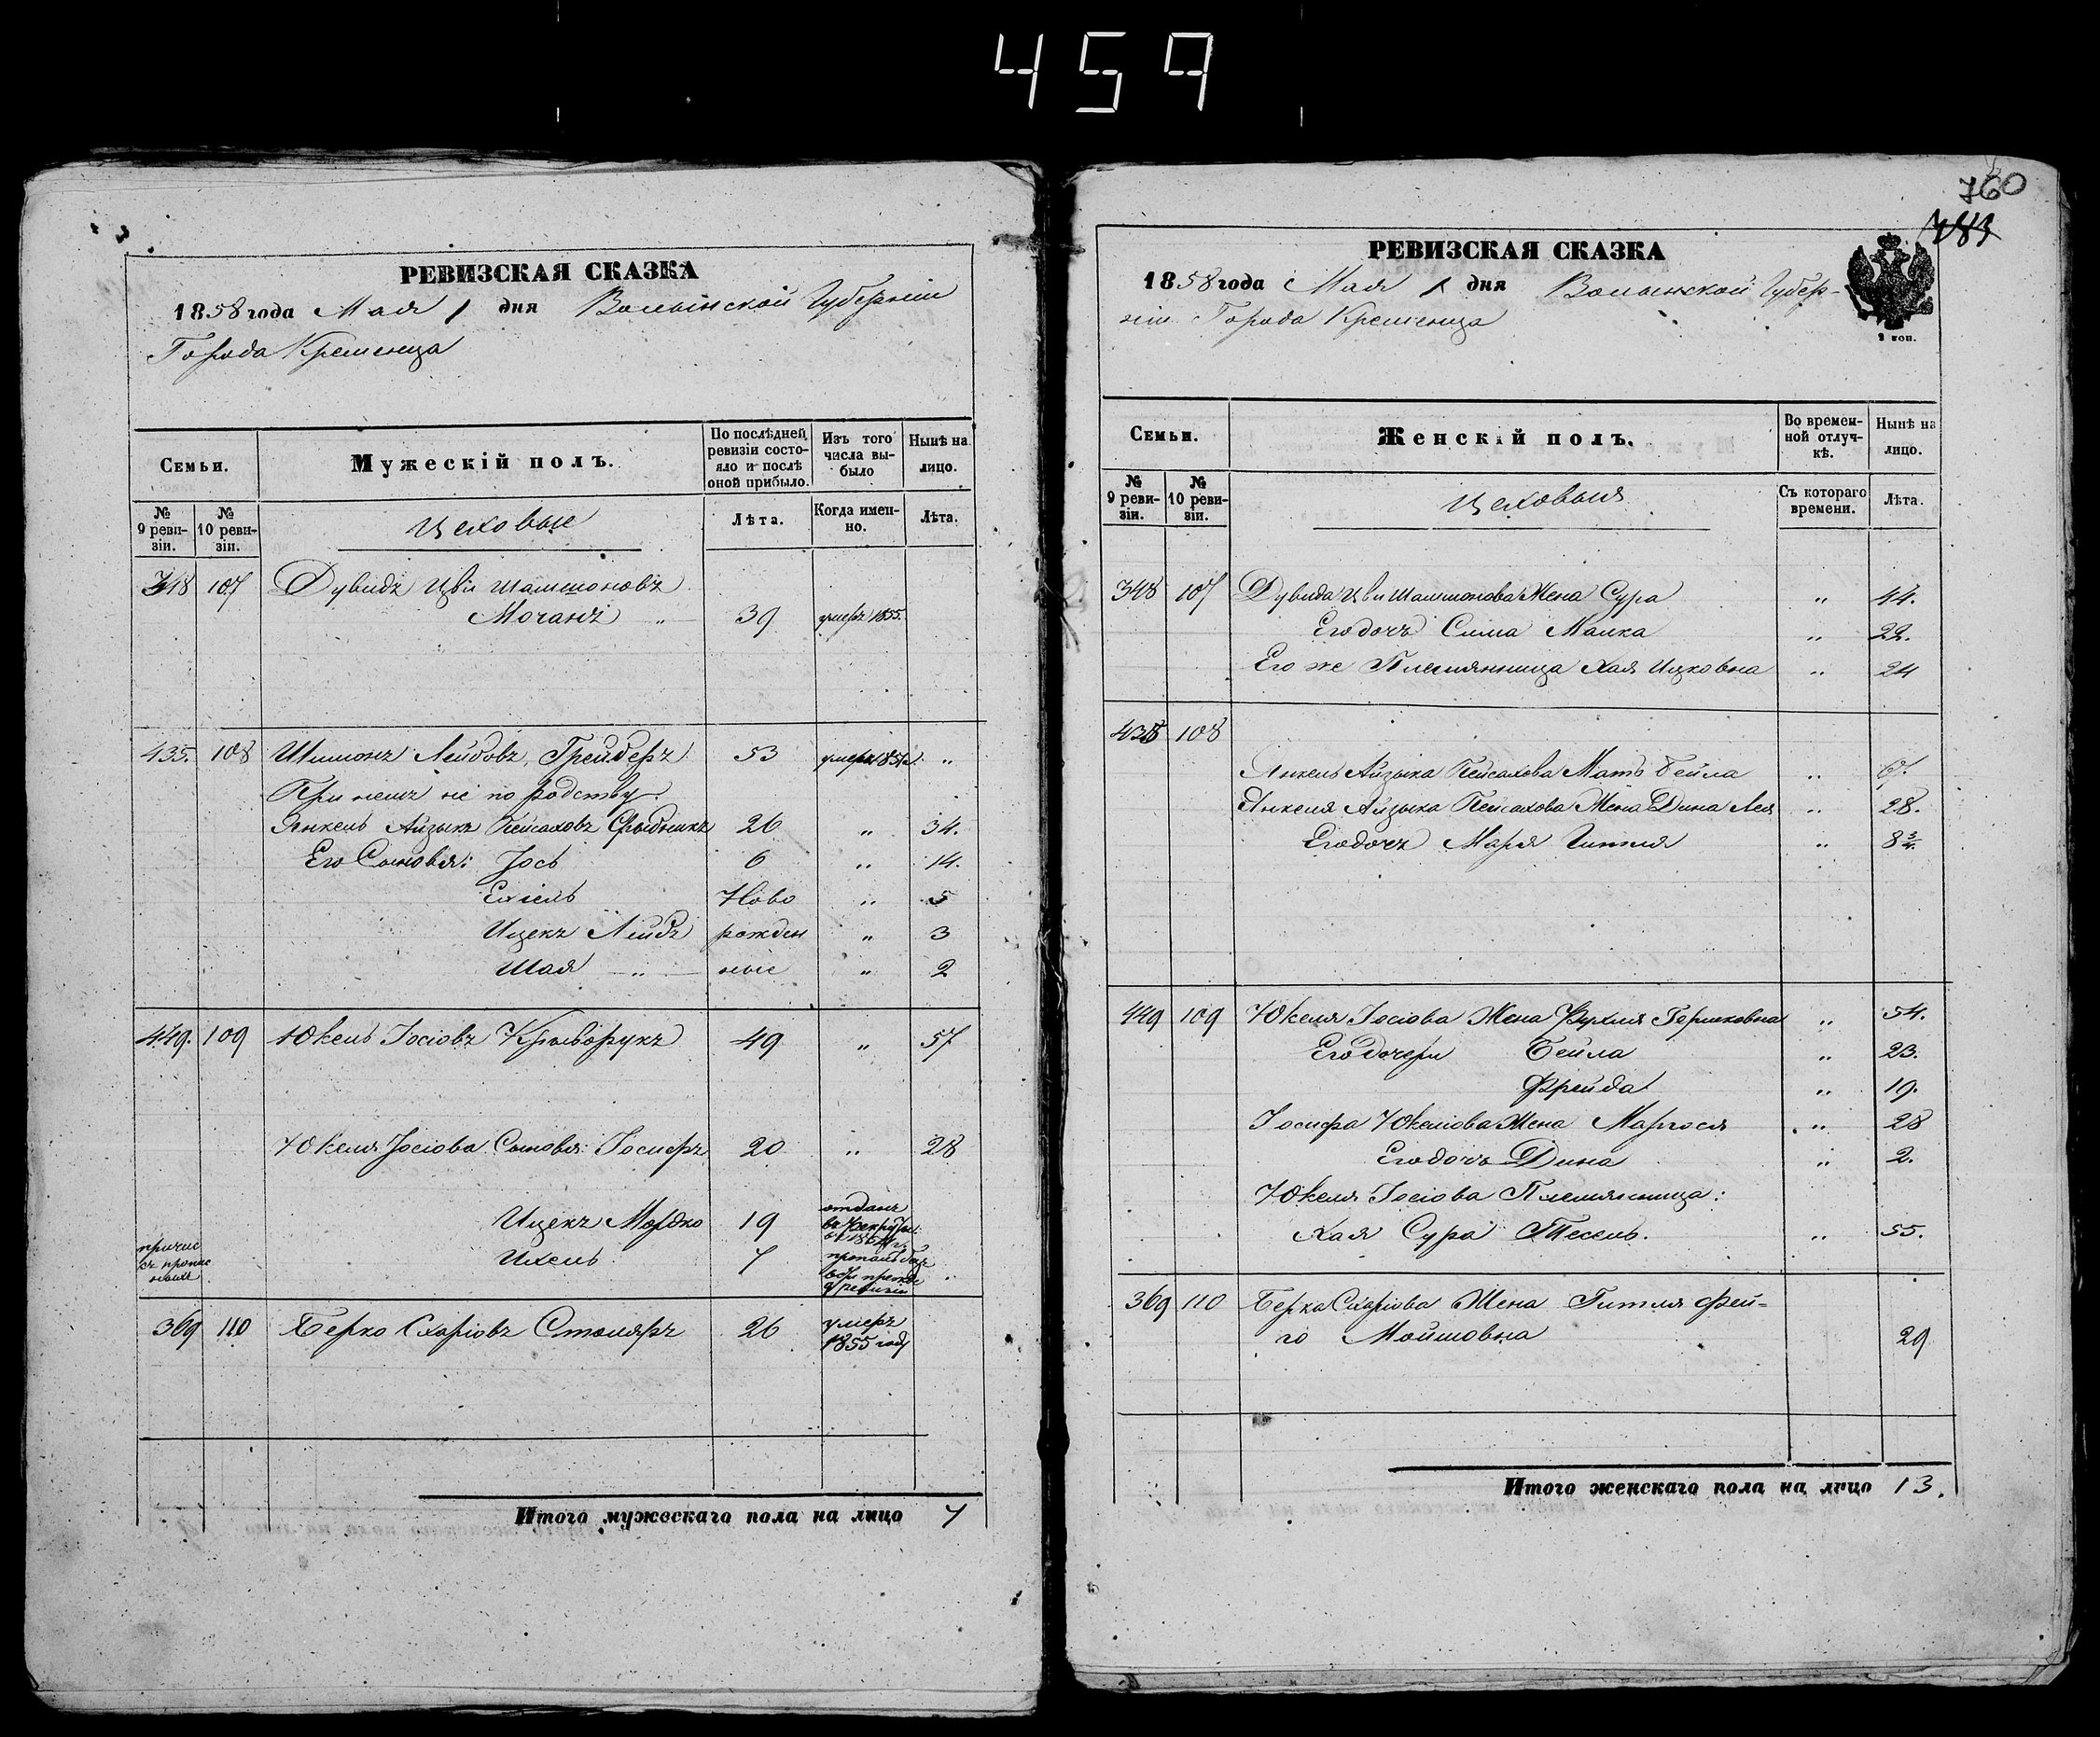 459
РЕВИЗСКАЯ СКАЗКА
1858 года Мая 1 дня Волынской Губерніи
Города Кременца
Семьи.
Мужескій полъ.
По послѣдней ревизіи состояло и послѣ оной прибыло.
Изъ того числа выбыло
Ныне на лицо.
№ 9 ревизіи.
№ 10 ревизіи.
Цеховые
Лѣта.
Когда именно.
Лѣта.
348 107 Дувидъ Цви Шамшоновъ
Мочанъ „ 39 умеръ 1855.
435. 108 Шимонъ Лейбовъ Грейдеръ 53 умеръ „
При немъ не по родству
Янкель Айзыкъ Пейсаховъ 26 „ 34.
Его Сыновья: Іось 6 „ 14.
Ехіель Ново „ 5
Ицекъ Лейбъ рожден „ 3
Шая „ ные „ 2
449. 109 Юкель Іосіовъ Криворукъ 49 „ 57
Юкеля Іосіова Сыновья: Іосифъ 20 „ 28
Ицекъ Мордко 19 отданъ
Ихель 7 „
369 110 Берко Схаріовъ Столяръ 26 умеръ
1855 году
Итого мужескаго пола на лицо 7
760
783
РЕВИЗСКАЯ СКАЗКА
1858 года Мая 1 дня Волынской Губер-
ніи Города Кременца
2 коп.
Семьи.
Женскій полъ.
Во временной отлучкѣ.
Нынѣ на лицо.
№ 9 ревизіи.
№ 10 ревизіи.
Цеховыя
Съ котораго времени.
Лѣта.
348 107 Дувида Цви Шамшонова Жена Сура „ 44.
Его дочь Сима Малка „ 22.
Его же Племянница Хая Ицковна „ 24
435 108
Янкель Айзыка Пейсахова Мать Бейла „
Янкеля Айзыка Пейсахова Жена Дина Лея „ 28.
Его дочь Маря Гитля „ 8 3/4.
449 109 Юкеля Іосіова Жена Рухля Гершковна „ 54.
Его дочери Бейла „ 23.
Фрейда „ 19.
Іосифа Юкеліова Жена Маргося „ 28
Его дочь Дина „ 2.
Юкеля Іосіова Племянница:
Хая Сура Тесель. „ 55.
369 110 Берка Схаріова Жена Гитля Фей=
го Мошковна 29
Итого женскаго пола на лицо 13.